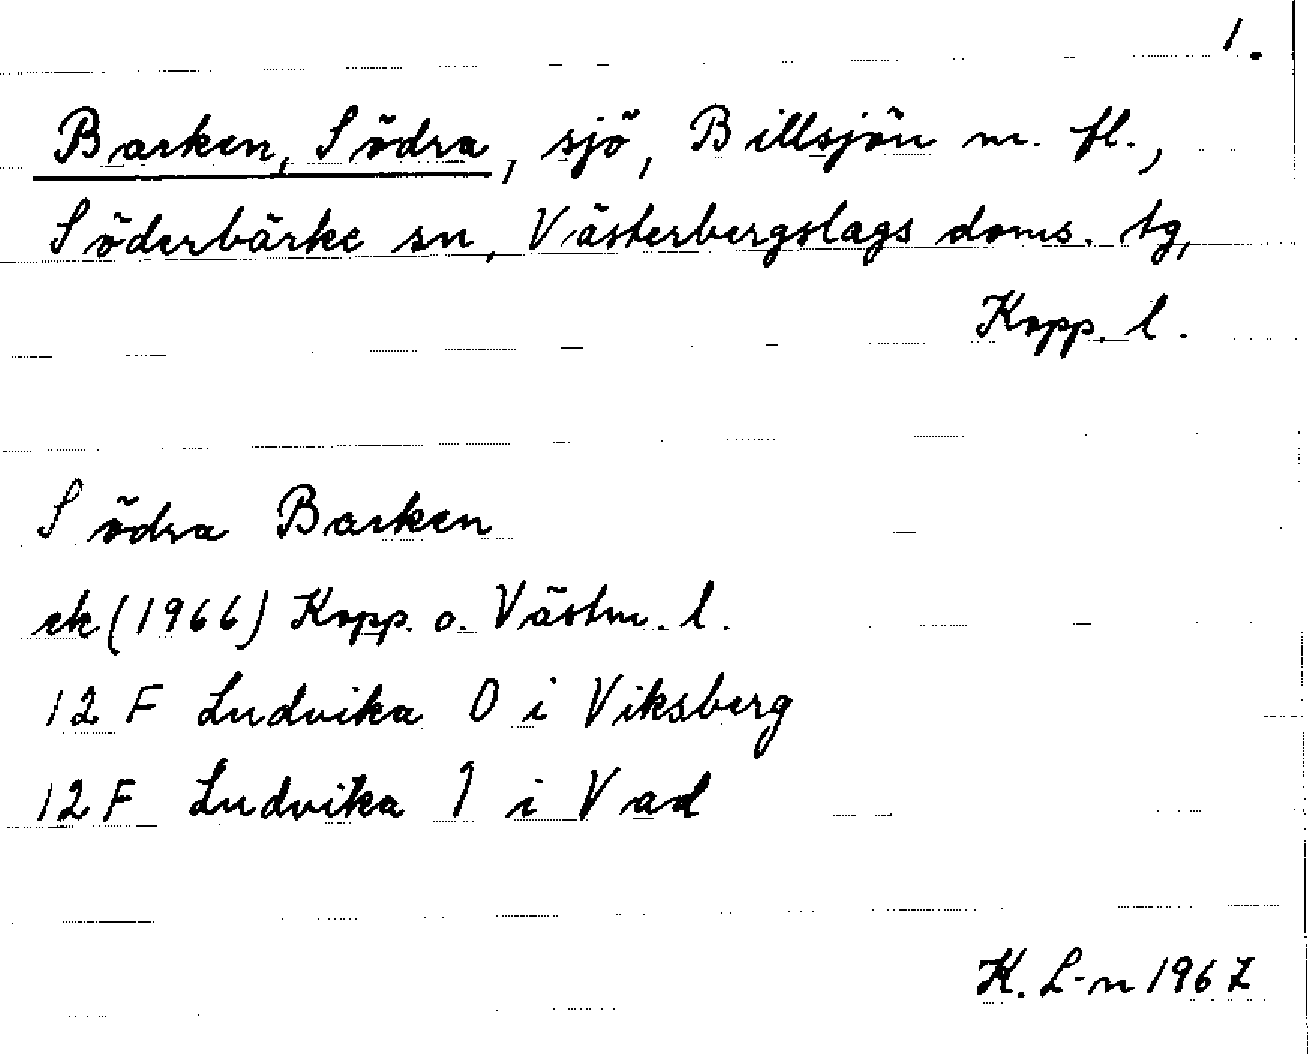 1.
Barken, Södra, sjö, Billsjön m. fl.,
Söderbärke sn, Västerbergslags doms. tg,
Kopp. l.
Södra Barken
ek (1966) Kopp. o. Västm. l.
12 F Ludvika 0 i Viksberg
12 F Ludvika 1 i Vad
K. L-n 1967